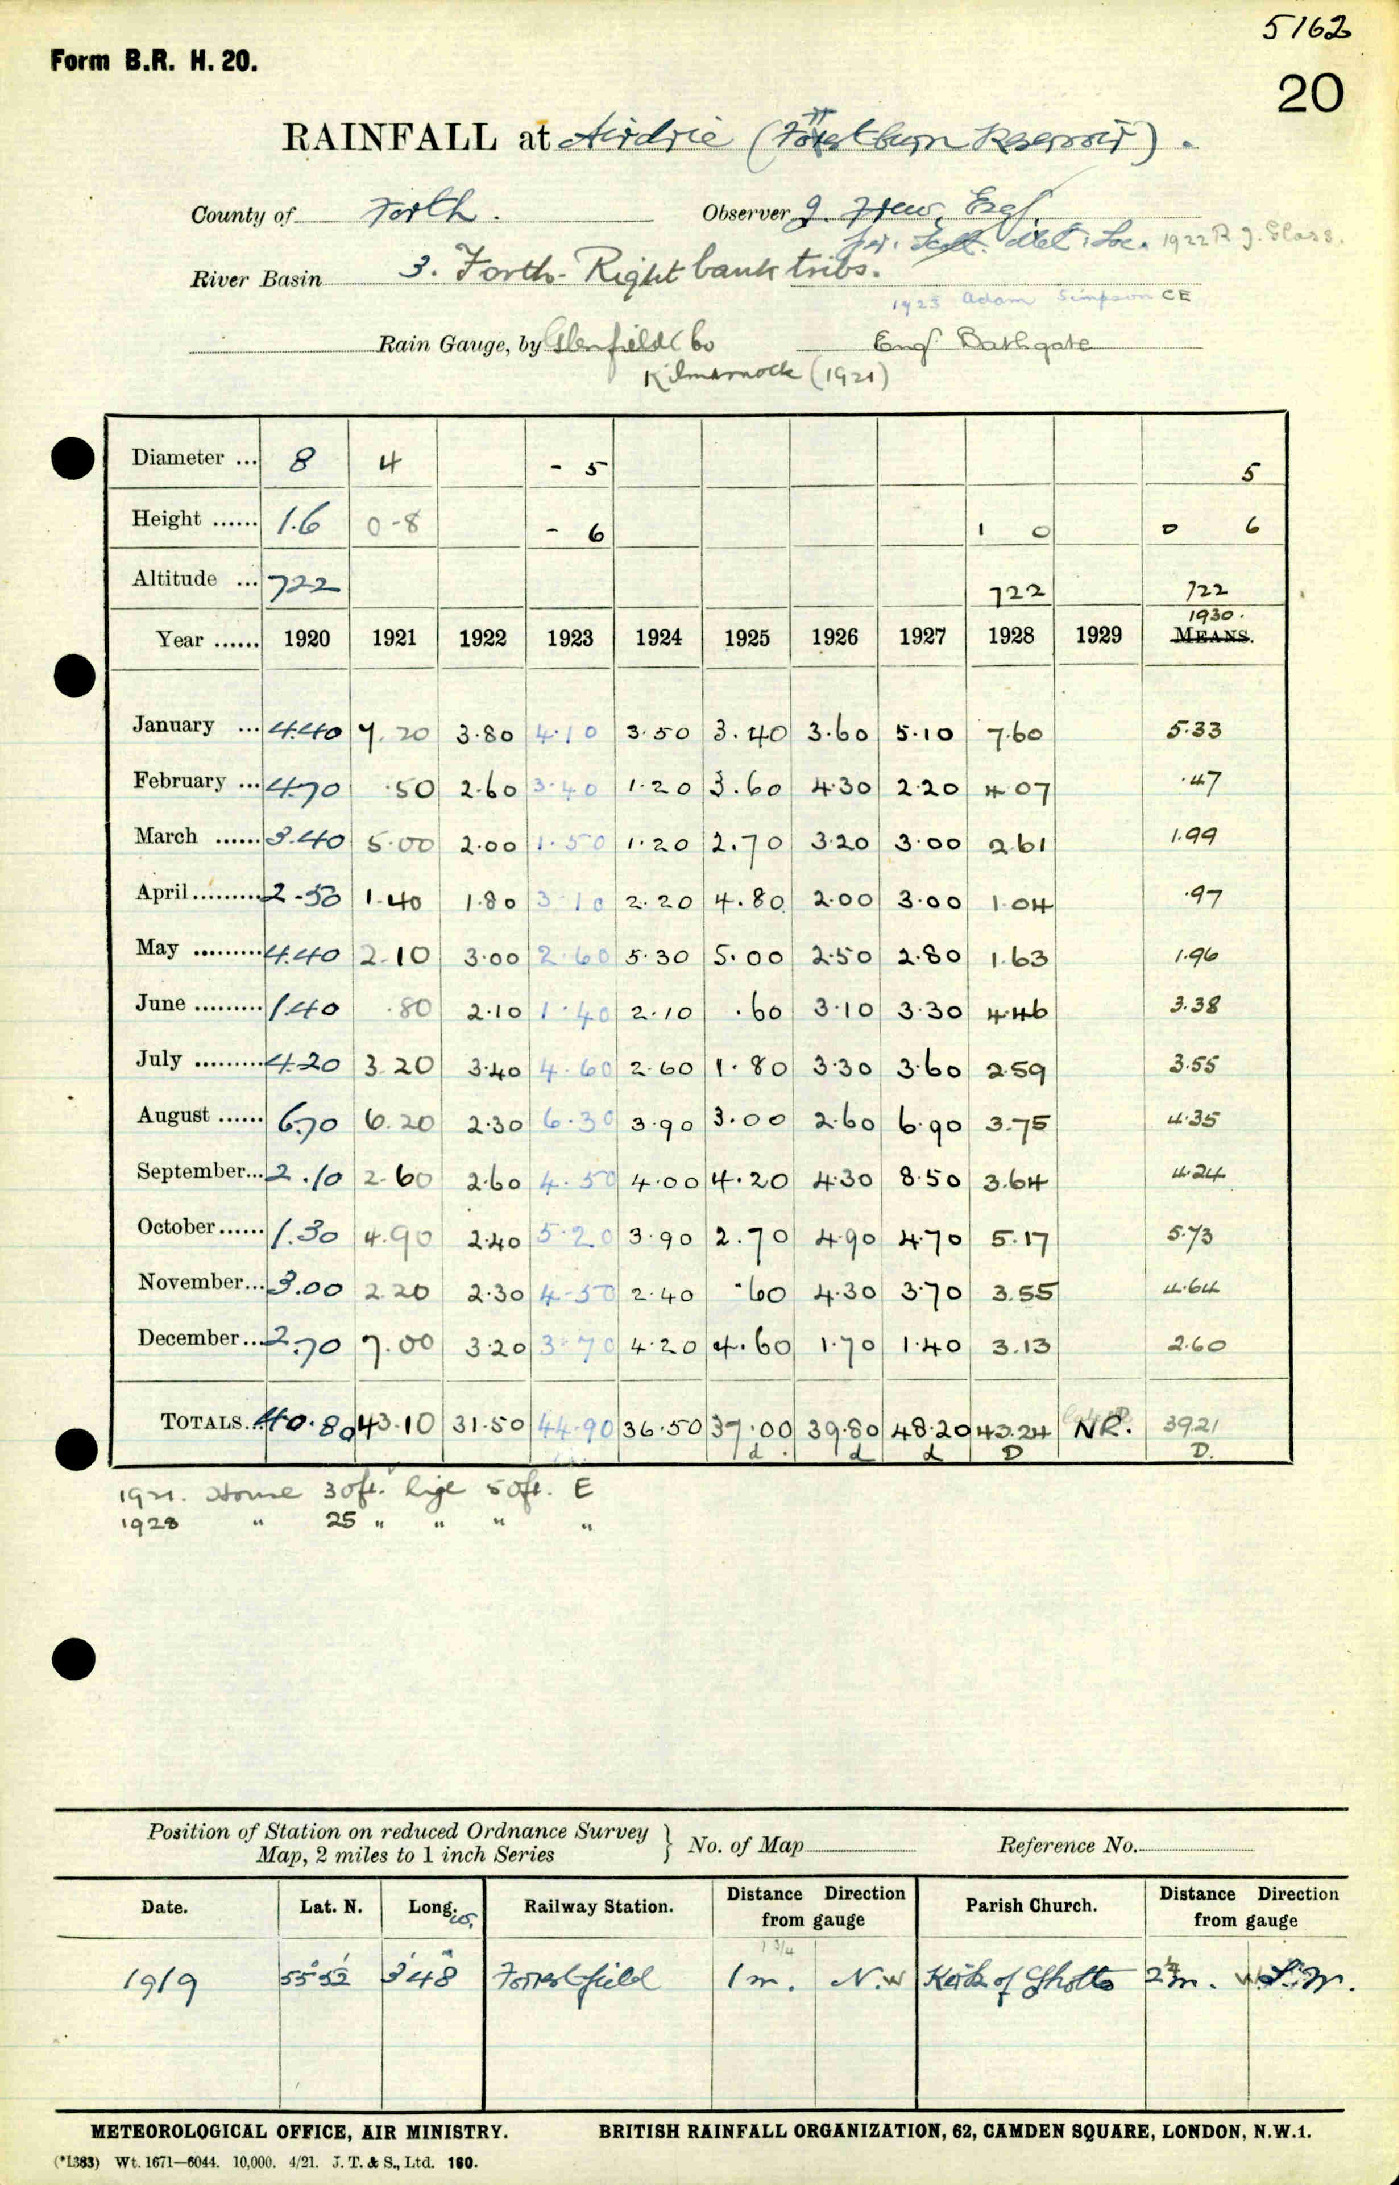 5162
Form B.R. H. 20.
20
RAINFALL at Airdrie (Forrestburn Reservoir).
County of Forth. Observer J. Frew, Esq.
per. Scott. Met. Soc. 1922 R J. Glass.
River Basin 3. Forth - Right bank tribs.
1923 Adam Simpson CE
Rain Gauge, by Glenfield Co Engr Bathgate
Kilmarnock (1921)
Diameter ... 8 4 - 5 5
Height ...... 1.6 0-8 - 6 1 0 0 6
Altitude ... 722 722 722
1930.
Year ...... 1920 1921 1922 1923 1924 1925 1926 1927 1928 1929 MEANS.
January ... 4.40 7.20 3.80 4.10 3.50 3.40 3.60 5.10 7.60 5.33
February ... 4.70 .50 2.60 3.40 1.20 3.60 4.30 2.20 4 07 .47
March ...... 3.40 5.00 2.00 1.50 1.20 2.70 3.20 3.00 2.61 1.99
April ......... 2.50 1.40 1.80 3.10 2.20 4.80 2.00 3.00 1.04 .97
May ......... 4.40 2.10 3.00 2.60 5.30 5.00 2.50 2.80 1.63 1.96
June ......... 1.40 .80 2.10 1.40 2.10 .60 3.10 3.30 4.46 3.38
July ......... 4.20 3.20 3.40 4.60 2.60 1.80 3.30 3.60 2.59 3.55
August ...... 6.70 6.20 2.30 6.30 3.90 3.00 2.60 6.90 3.75 4.35
September... 2.10 2.60 2.60 4.50 4.00 4.20 4.30 8.50 3.64 4.24
October ...... 1.30 4.90 2.40 5.20 3.90 2.70 4.90 4.70 5.17 5.73
November... 3.00 2.20 2.30 4.50 2.40 .60 4.30 3.70 3.55 4.64
December... 2.70 7.00 3.20 3.70 4.20 4.60 1.70 1.40 3.13 2.60
TOTALS... 40.80 43.10 31.50 44.90 36.50 37.00 39.80 48.20 43.24 NR. 39.21
d. d d D D.
1921. House 30ft. high 50ft. E
1928 " 25 " " " "
Position of Station on reduced Ordnance Survey
Map, 2 miles to 1 inch Series } No. of Map Reference No.
Date. Lat. N. Long. W. Railway Station. Distance Direction from gauge Parish Church. Distance Direction from gauge
1 3/4
1919 55°52' 3°48' Forrestfield 1 m. N.W Kirk of Shotts 2 1/4 m.
METEOROLOGICAL OFFICE, AIR MINISTRY. BRITISH RAINFALL ORGANIZATION, 62, CAMDEN SQUARE, LONDON, N.W.1.
(*1383) Wt. 1671—6044. 10,000. 4/21. J. T. & S., Ltd. 160.